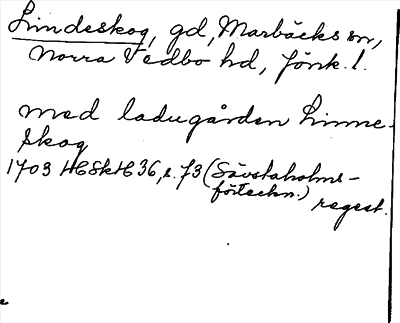 Lindeskog, gd, Marbäcks sn,
Norra Vedbo hd, Jönk. l.
med ladugården Linne-
skog
1703 HC8kHC36, s. 73 (Sävstaholms-
förteckn.) regest.